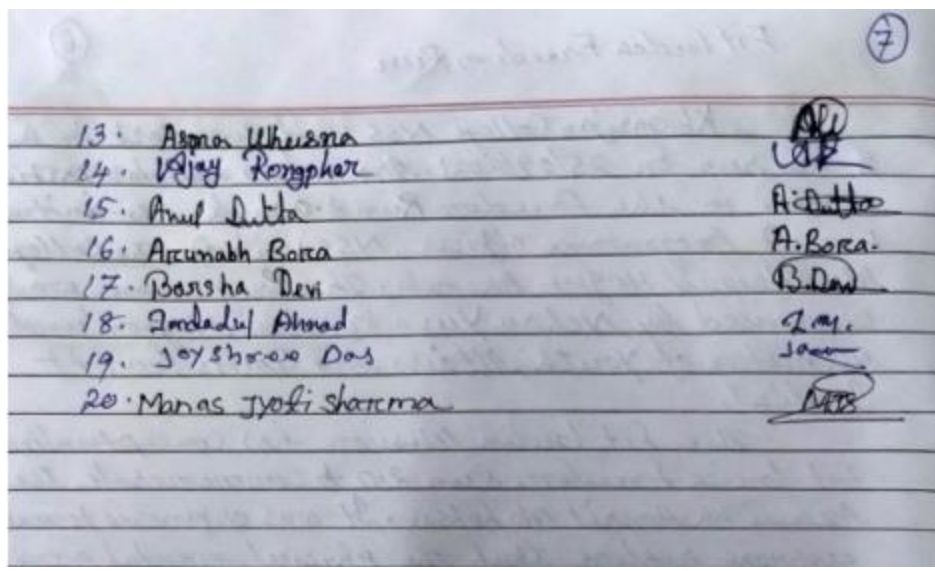 7
13. Asma Uhusna
14. Vijay Rongphar
15. Anup Dutta A. Dutta
16. Arunabh Bora A. Bora.
17. Barsha Devi B. Devi
18. Imdadul Ahmad
19. Joyshree Das
20. Manas Jyoti Sharma